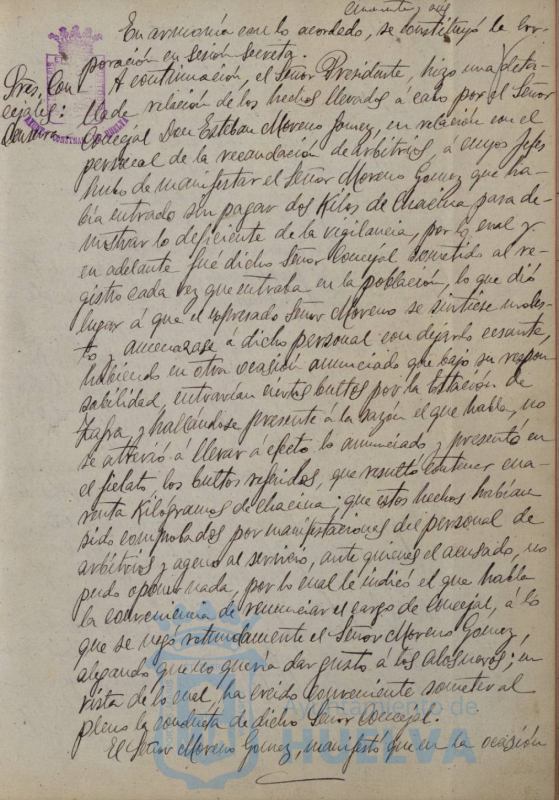 cuarenta y seis
En armonía con lo acordado, se constituyó la Cor-
poración en sesión secreta.
Pres. Con
cejales:
Censura
A continuación, el Señor Presidente, hizo una deta-
llada relación de los hechos llevados a cabo por el Señor
Concejal Don Esteban Moreno Gomez, en relación con el
personal de la recaudación de arbitrios, a cuyos Jefes
hubo de manifestar el Señor Moreno Gómez que ha-
bía entrado sin pagar dos Kilos de chacina para de-
mostrar lo deficiente de la vigilancia, por lo cual y
en adelante fué dicho Señor Concejal sometido al re-
gistro cada vez que entraba en la población, lo que dió
lugar á que el expresado Señor Moreno se sintiese moles-
to y amenazase á dicho personal con dejarlo cesante,
habiendo en otra ocasión anunciado que bajo su respon
sabilidad, entrarían ciertos bultos por la Estación de
Zafra, y hallándose presente á la sazón el que habla, no
se atrevió a llevar á efecto lo anunciado y presentó en
el fielato los bultos referidos, que resultó contener cua-
renta Kilogramos de chacina; que estos hechos habían
sido comprobados por manifestaciones del personal de
arbitrios y ageno al servicio, ante quienes el acusado, no
pudo oponer nada, por lo cual le indicó el que habla
la conveniencia de renunciar el cargo de Concejal, á lo
que se negó rotundamente el Señor Moreno Gómez,
alegando que no quería dar gusto á los alosneros; en
vista de lo cual, ha creido conveniente someter al
pleno la conducta de dicho Señor Concejal.
El Señor Moreno Gomez, manifestó que en la ocasión
Ayuntamiento de
HUELVA